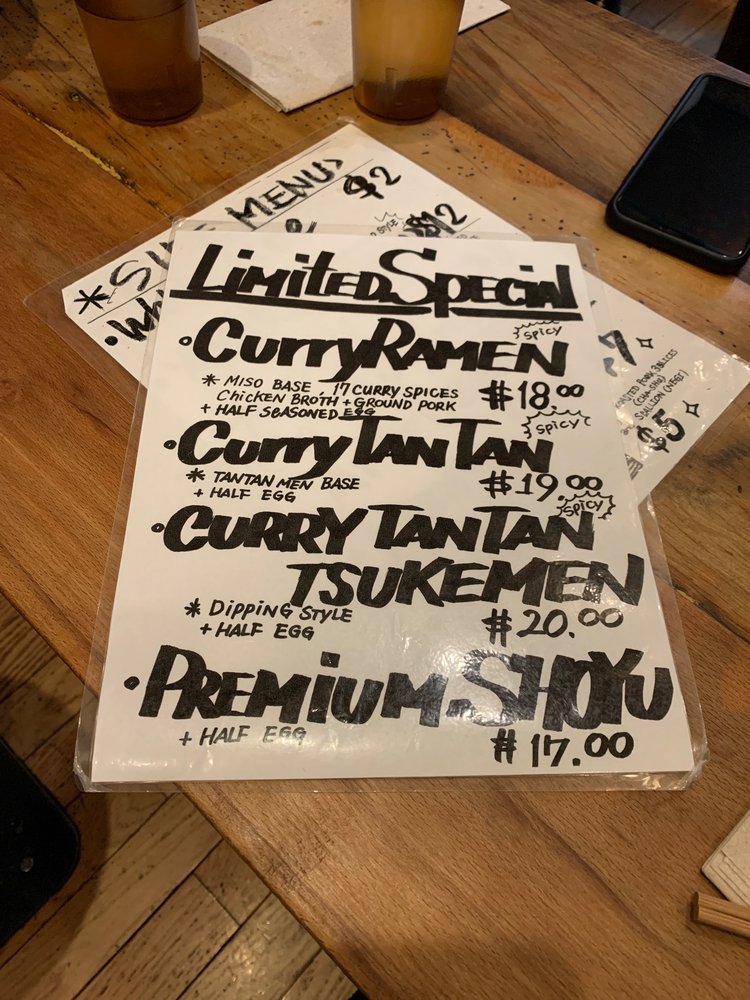 * SIDE MENU
$2
$12
Limited Special
• Curry RAMEN
SPICY
* MISO BASE, 17 CURRY SPICES
$18.00
CHICKEN BROTH + GROUND PORK
+ HALF SEASONED EGG
SPICY
• Curry TAN TAN
* TANTAN MEN BASE
$19.00
+ HALF EGG
SPICY
• CURRY TANTAN
TSUKEMEN
* DIPPING STYLE
$20.00
+ HALF EGG
• PREMIUM SHOYU
+ HALF EGG
$17.00
7
PORK 3SLICES
(CHA-SHU)
SCALLION (NEGI)
$5